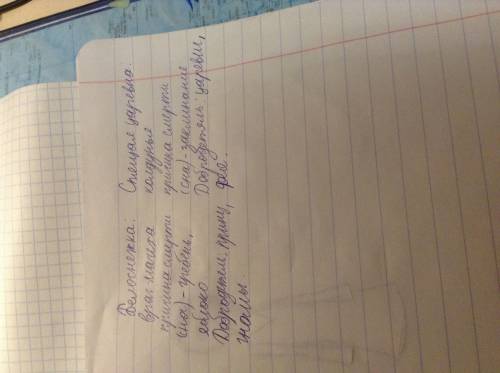 Белоснежка:
враг-мачеха
причина смерти
(сна) - гребень,
яблоко
Добродетели: принц,
гномы.
Спещая царевна.
колдунья
причина смерти
(сна) - заклинание
Добродетель: царевич,
фея.